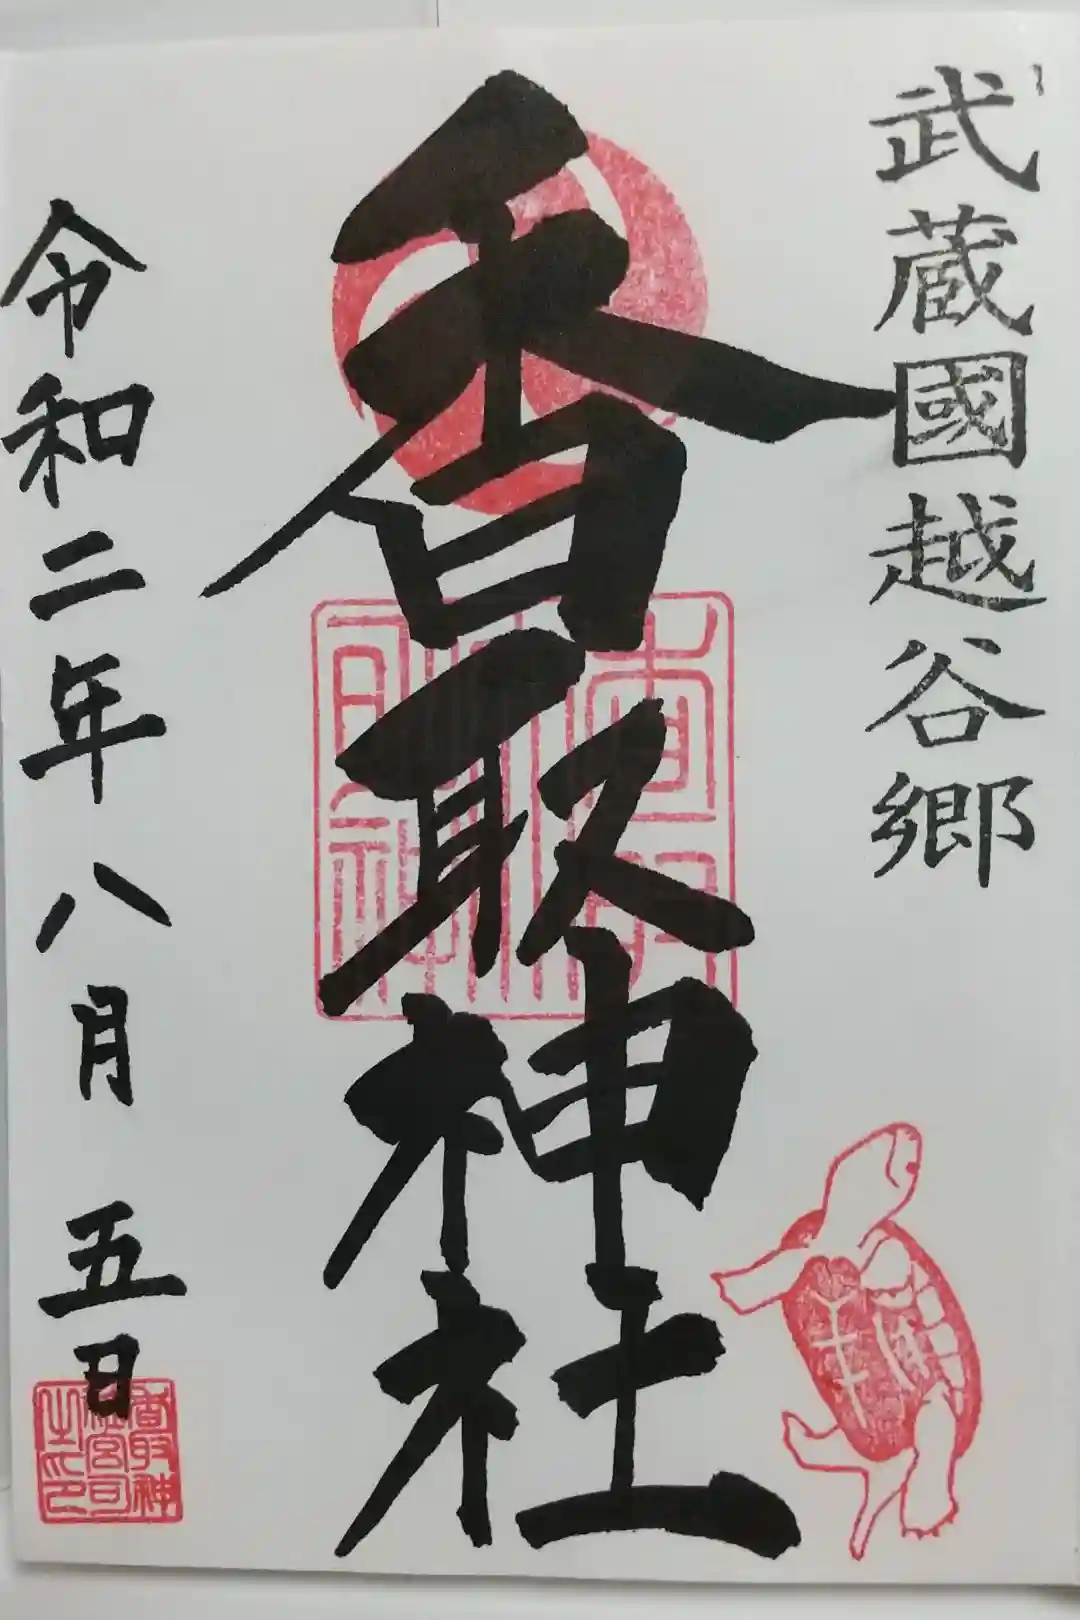 武蔵國越谷郷
香取神社
令和二年八月五日
香取神
社宮司
之印